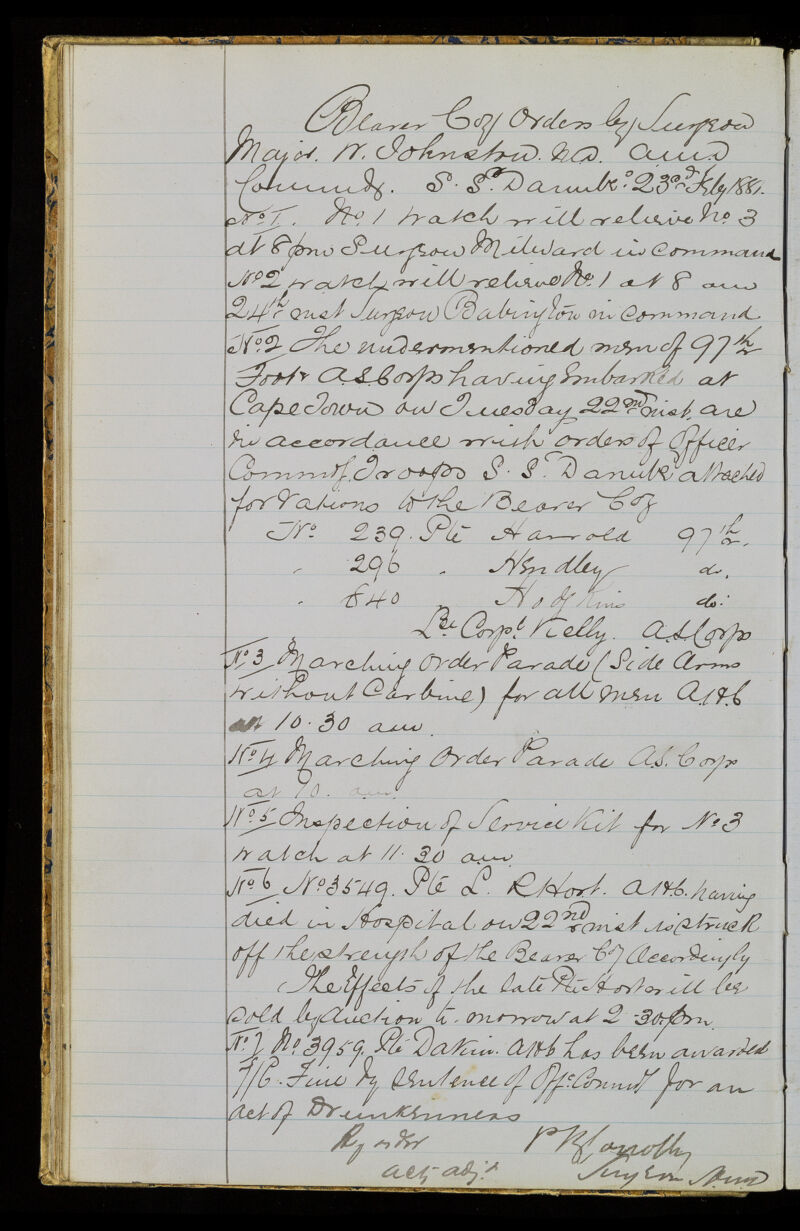 Bearer Coy Orders by Surgeon
Major W. Johnston M.D. A.M.D
Commdg. S.S. Danube 23rd Feby 1881.
No 1. No. 1 watch will relieve No 3
at 8 pm Surgeon Milward in command
No 2 watch will relieve No 1 at 8 am
24th inst Surgeon Babington in command
No 2 The undermentioned men of 97th
Foot & A S Corps having Embarked at
Cape Town on Tuesday 22nd inst. are
in accordance with orders of Officer
Commdg. Troops S.S. Danube attached
for rations to the Bearer Coy
No 239. Pte Harrold 97th.
" 296 " Hendley do.
" 640 Hodgkins do:
Lce Corpl Kelly. A.S Corps
No 3 Marching Order Parade (Side Arms
without Carbine) for all men A.H.C
at 10.30 am.
No 4 Marching Order Parade A.S. Corps
at 10. am.
No 5 Inspection of Service Kit for No 3
watch at 11.30 am.
No 6 No 3549. Pte L. R Hort. A.H.C. having
died in Hospital on 22nd inst is struck
off the strength of the Bearer Coy Accordingly
The Effects of the late Pte Hort will be
sold by Auction to-morrow at 2-30 pm.
No. 7 No 3959. Pte Dakin. A.H.C has been awarded
Fine by sentence of Offr. Commdg for an
act of Drunkenness
By order P B Conolly
actg adjt Surgeon